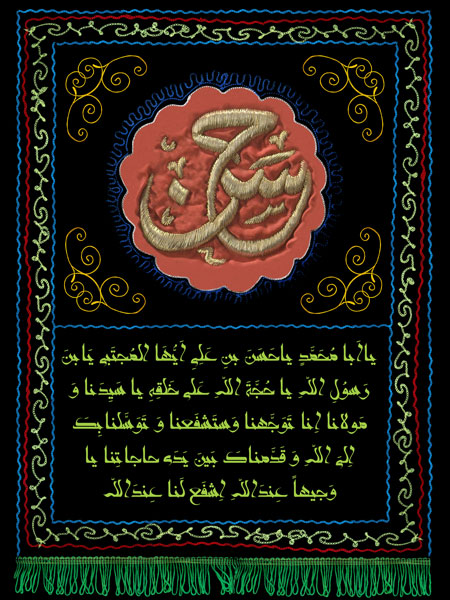 حسن
یا اَبا مُحَمَّدٍ یا حَسَنَ بنَ عَلِیٍ اَیُّهَا المُجتَبی یَابنَ
رَسوُلِ اللهِ یا حُجَّةَ اللهِ عَلی خَلقِهِ یا سَیِدَنا وَ
مَولانا اِنا تَوَجَّهنا وَستَشفَعنا وَ تَوَسَّلنا بِکَ
اِلیَ اللهِ وَ قَدَّمناکَ بَینَ یَدَی حاجاتِنا یا
وَجیهاً عِندَاللهِ اِشفَع لَنا عِندَاللهِ